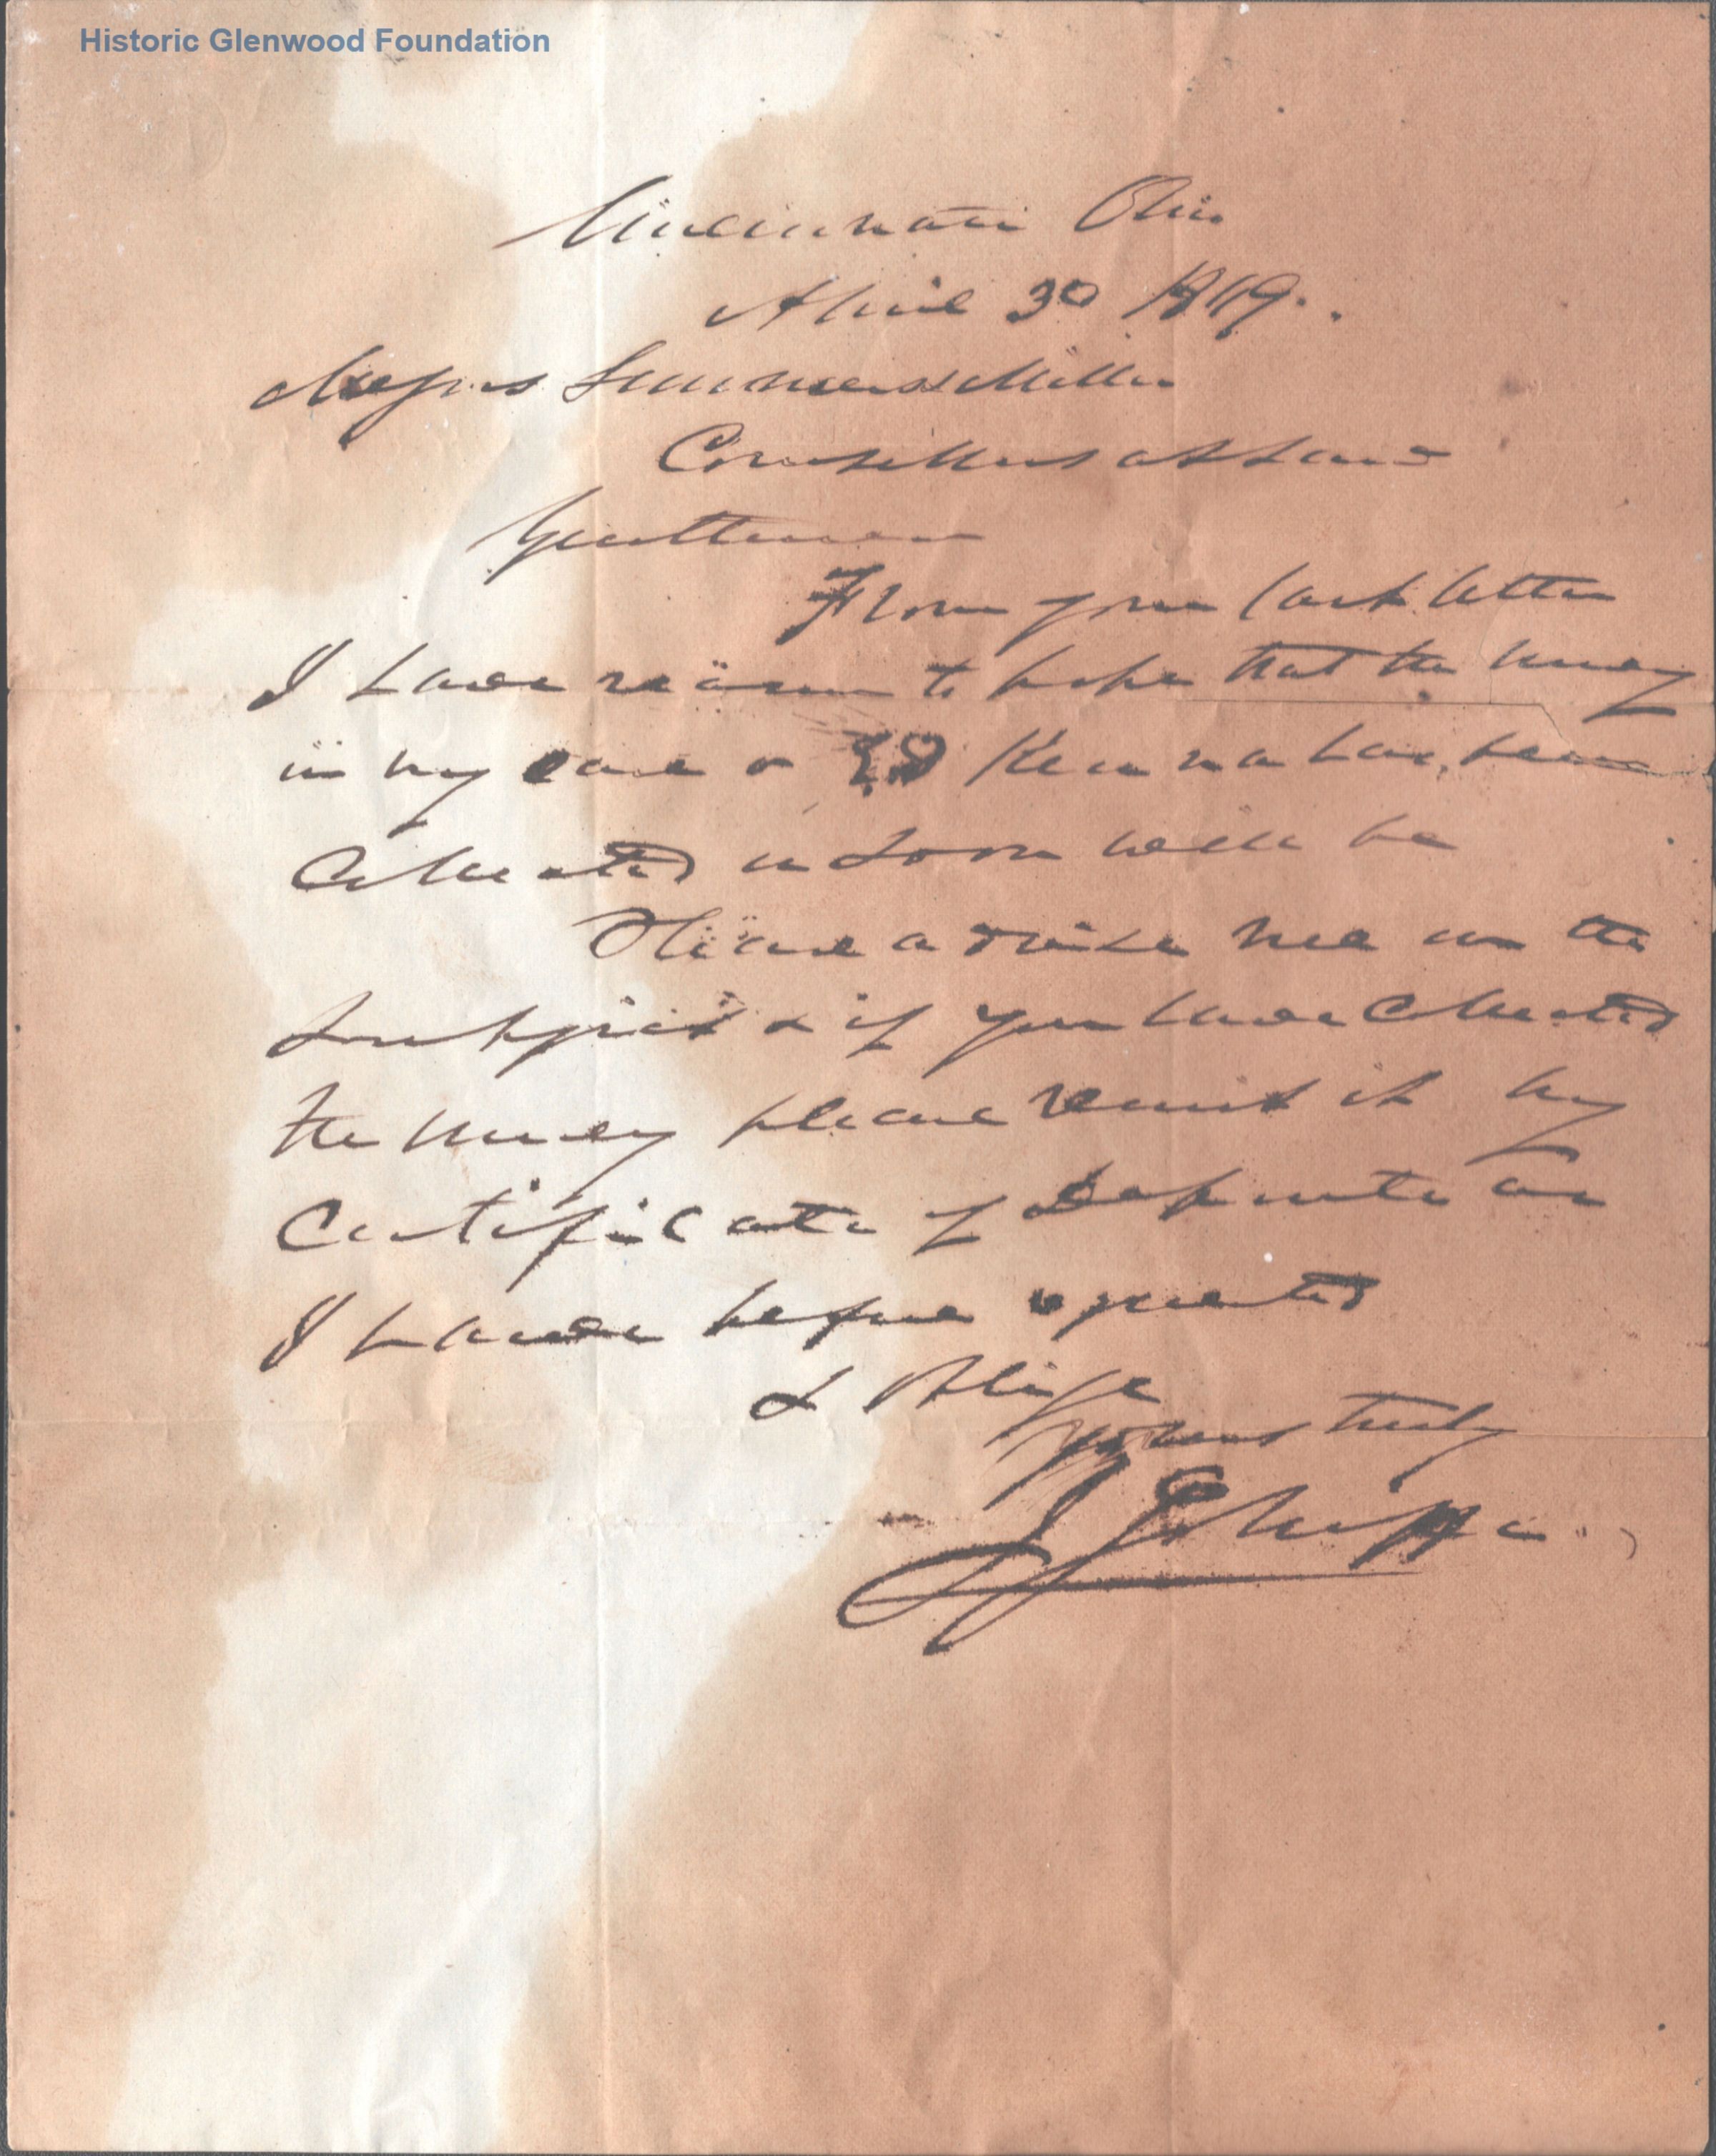 Historic Glenwood Foundation
Cincinnati Ohio
April 30 1849.
Messrs Summers & Miller
Counsellors at Law
Gentlemen
From your last letter
I have reason to hope that the money
in my case Kenna has been
Collected or soon will be
Please advise me on the
Subject & if you have Collected
the money please remit it by
Certificate of Deposite as
I have before requested
& Oblige
yours truly
J